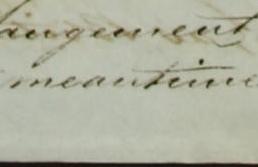 angement
meantime